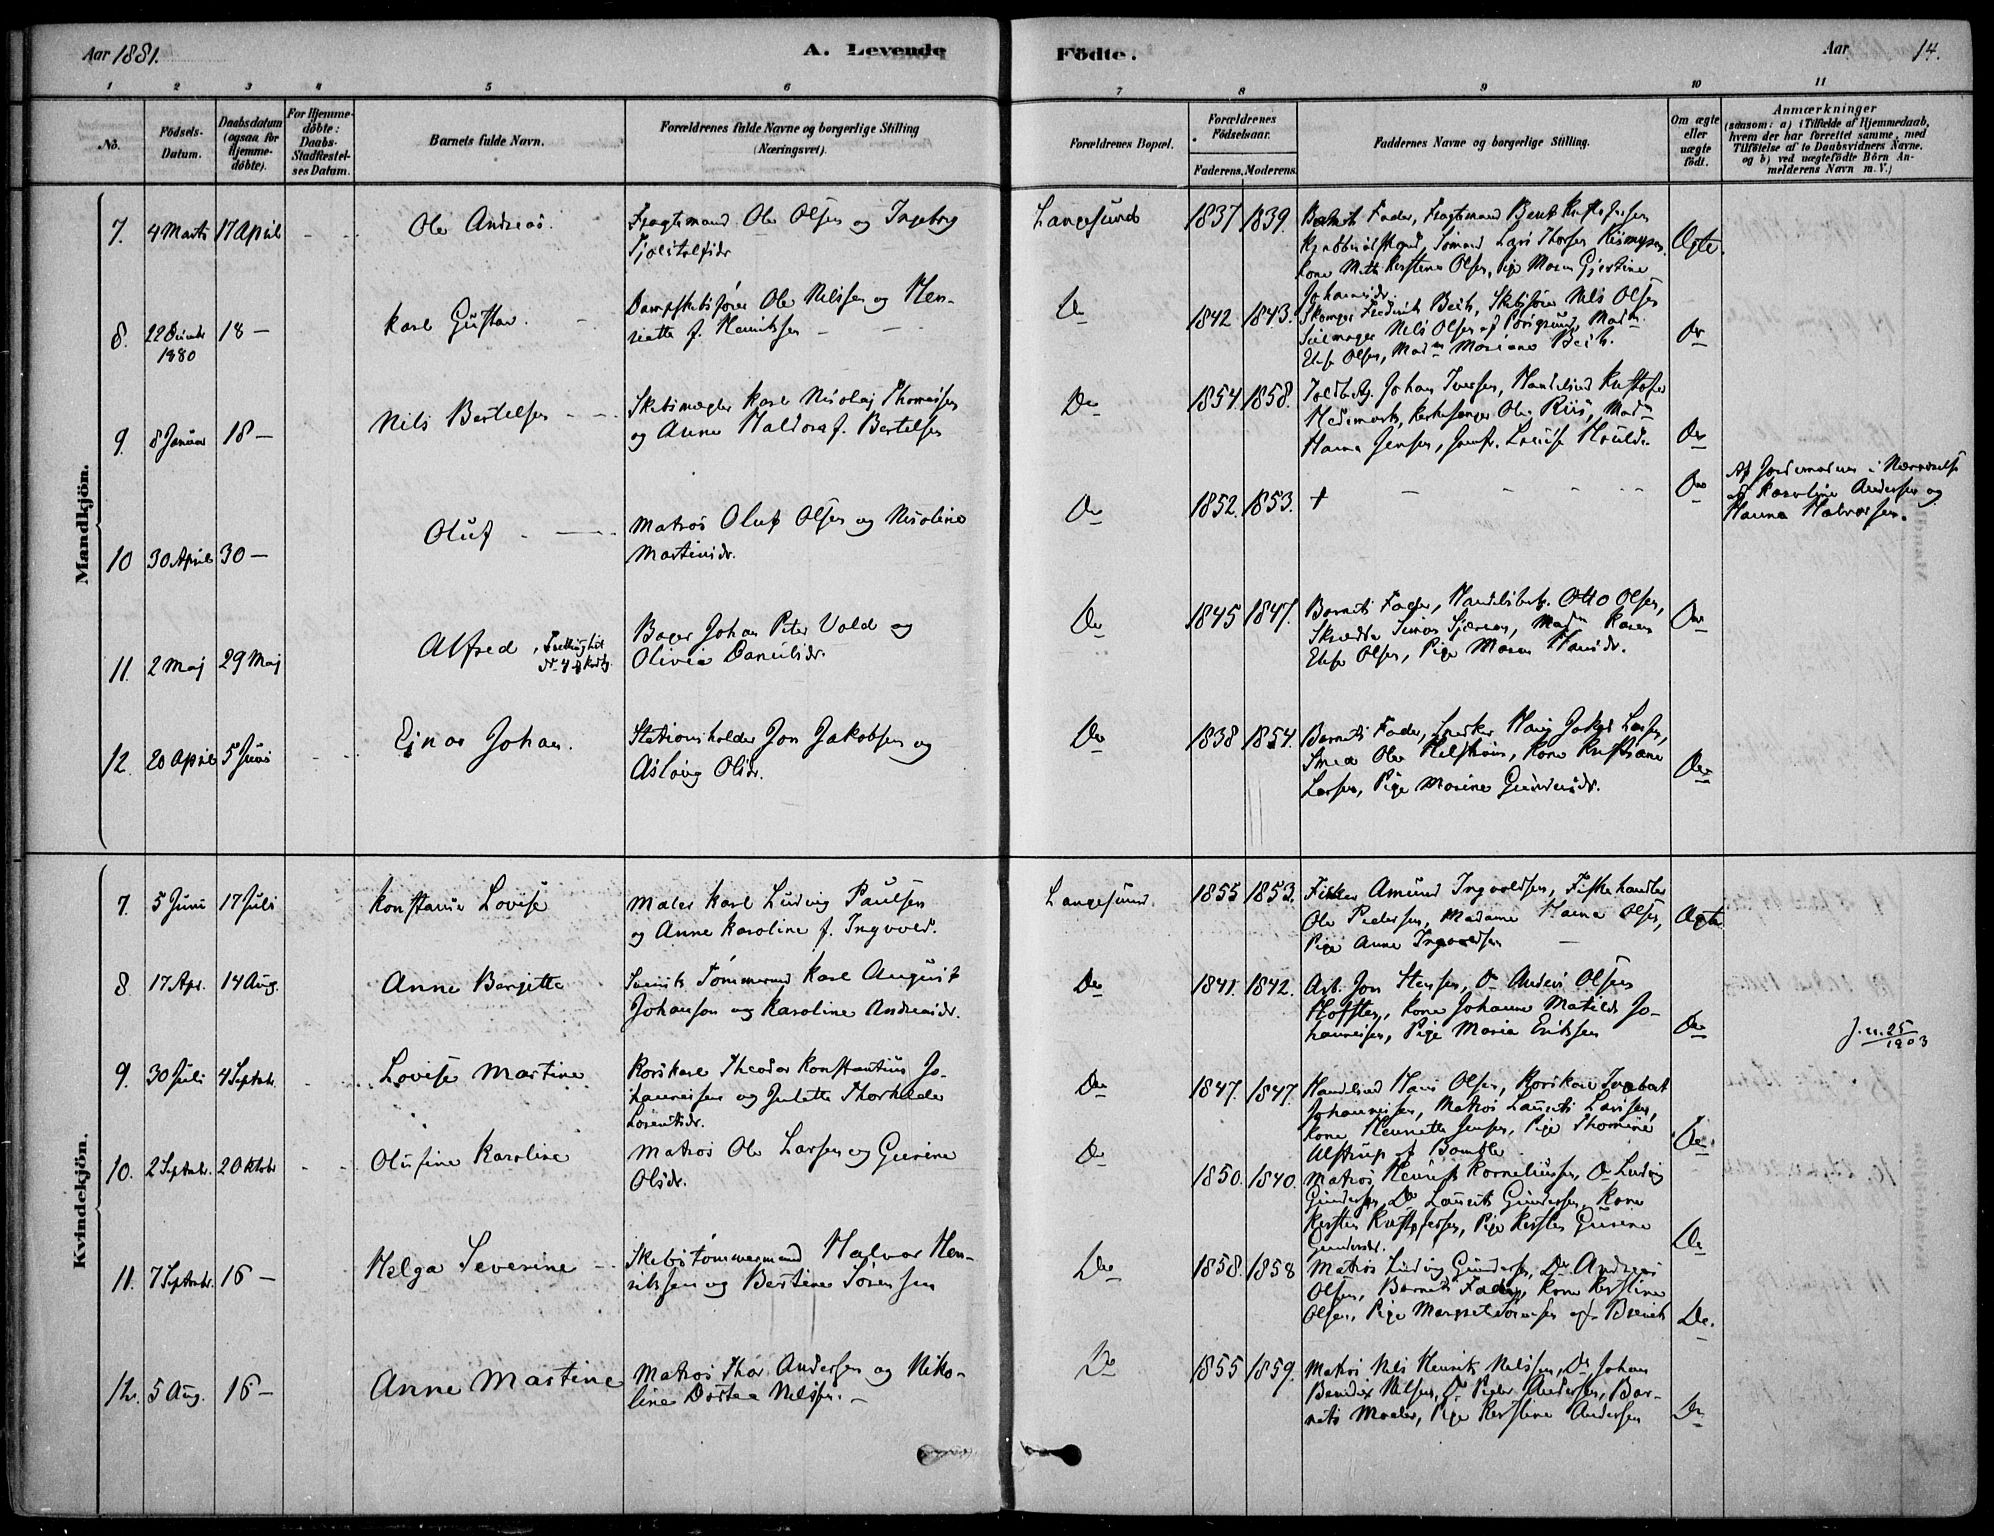 Aar 1881.
A. Levende
Födte.
Aar
14.
1 2 3 4 5 6 7 8 9 10 11
No.
Födsels-
Datum.
Daabsdatum
(ogsaa for
Hjemme-
döbte).
For Hjemme-
döbte:
Daabs-
Stadfæstel-
ses Datum.
Barnets fulde Navn.
Forældrenes fulde Navne og borgerlige Stilling
(Næringsvei).
Forældrenes Bopæl.
Forældrenes
Födselsaar.
Faderens. Moderens.
Faddernes Navne og borgerlige Stilling.
Om ægte
eller
uægte
födt.
Anmærkninger
(saasom: a) i Tilfælde af Hjemmedaab,
hvem der har forrettet samme, med
Tilföielse af to Daabsvidners Navne.
og b) ved uægtefödte Börn An-
melderens Navn m. V.)
Mandkjön.
7. 4 Marts 17 April
Ole Andreas.
Fragtmand Ole Olsen og Ingeborg
Langesund 1837 1839.
Barnets Fader, Fragtmand Bent
Sömand Lars Thorsen
Kone Kerstine Olsen, Pige Maren Gjertine
Johannesdr.
Ægte.
8. 22 1880 18 —
Karl Gustav.
Dampskibsförer Ole Nilssen og Hen-
riette f. Henriksen
Do 1842 1843.
Frederik Beck, Skibsförer Nils Olsen
Seilmager Nils Olsen af Porsgrund, Madm
Elise Olsen, Madm Mariane Beck.
Do
9. 8 Januar 18 —
Nils Bertelsen
Skibsmægler Karl Nicolaj Thomassen
og Anne Haldora f. Bertelsen
Do 1854. 1858.
Johan Iversen, Handelsmd Kristofer
Hedemark, Kirkesanger Ole Riis, Madm
Hanna Jensen, Jomfr. Lovise
Do
10 30 April 30 —
Oluf
Matros Oluf Olsen og Nicoline
Martinsdr.
Do 1852. 1853. +
Do
Af Jordemoderen i Nærværelse
af Karoline Andersen og
Hanna Halvorsen.
11. 2 Maj 29 Maj
Alfred,
Bager Johan Peter Vold og
Olivia Danielsdr.
Do 1845 1847.
Barnets Fader, Otto Olsen,
Elise Olsen, Pige Maren Hansdr.
Do
12. 20 April 5 Juni
Ejnar Johan.
Stationsholder Jon Jakobsen og
Aslaug Olsdr.
Do 1838 1854.
Barnets Fader, Hans Jakob Larsen,
Smed Ole Kone Kristiane
Larsen, Pige Marine Gundersdr.
Do
Kvindekjön.
7. 5 Juni 17 Juli
Konstanse Lovise
Maler Karl Ludvig Paulsen
og Anne Karoline f. Ingvold.
Langesund. 1855 1853.
Fisker Amund Ingvoldsen, Fiskehandler
Ole Pedersen, Madame Hanna Olsen,
Pige Anne Ingvoldsen
Ægte
8 17 Apr. 14 Aug.
Anne Bergitte
Svensk Tömmermd Karl August
Johanson og Karoline Andreasdr.
Do 1841. 1842.
Arb. Jon Stensen, Do Anders Olsen
Kone Johanne Matilde Jo-
hannesen, Pige Maria Eriksen
Do
J. n. 25/1903
9. 30 Juli 4 Septbr.
Lovise Martine
Theodor Konstantius Jo-
hannessen og Julette Thorhilda
Lorentsdr.
Do 1847. 1847.
Handelsmd Hans Olsen,
Johannessen, Matros Laurits Larsen,
Kone Henriette Jensen, Pige Thomine
Alstrup af Bamble
Do
10. 2 Septbr. 2 Oktobr
Olufine Karoline
Matros Ole Larsen og Gurine
Olsdr.
Do 1850. 1840.
Matros Henrik Korneliussen, Do Ludvig
Gundersen, Do Laurits Gundersen, Kone
Kersten Kristofersen, Pige Kersten Gurine
Gundersdr.
Do
11. 7 Septbr. 16 —
Helga Severine
Skibstömmermand Halvor Hen-
riksen og Bertine Sörensen
Do 1858. 1858
Matros Ludvig Gundersen, Do Andreas
Olsen, Barnets Fader, Kone Kerstine
Olsen, Pige Margret Sörensen af Brevik
Do.
12. 5 Aug. 16 —
Anne Martine
Matros Thor Andersen og Niko-
line Dortea Nilssen. —
Do 1855 1859.
Matros Nils Henrik Nilssen, Do Johan
Bendix Nilsen, Do Peder Andersen, Bar-
nets Moder, Pige Kerstine Andersen
Do